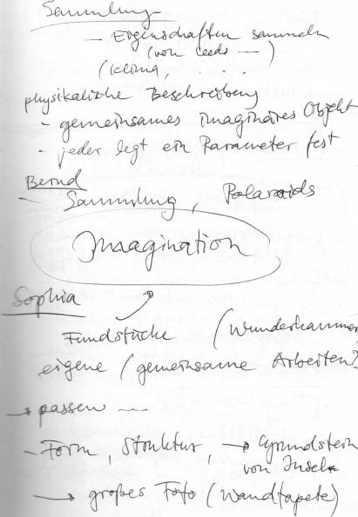 Sammlung
- Eigenschaften sammeln
(von Leeds —)
(Klima, . . .
physikalische Beschreibung
- gemeinsames imaginäres Objekt
- jeder legt ein Parameter fest
Bernd
- Sammlung, Polaroids
Imagination
Sophia
Fundstücke (Wunderkammer
eigene / gemeinsame Arbeiten?
→ passen —
- Form, Struktur, → Grundstein
von Insel
→ großes Foto (Wandtapete)